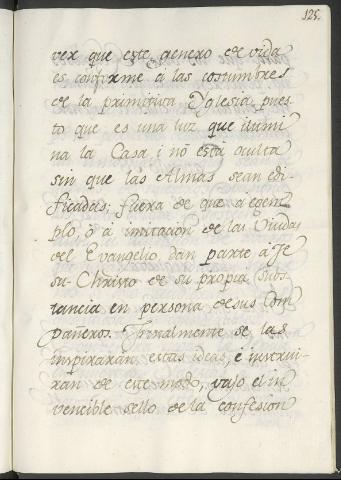 125.
ver que este genero de vida
es conforme á las costumbres
de la primitiva Yglesia, pues-
to que es una luz que ilumi
na la Casa, i nò està oculta
sin que las Almas sean edi-
ficadas; fuera de que a egem
plo, ò á imitacion de las Viudas
del Evangelio, dan parte á Je
su-Christo de su propia subs
tancia en persona de sus Com
pañeros. Finalmente se les
inspiraràn estas ideas, è instrui-
ràn de este modo, vajo el in
vencible sello de la confesion